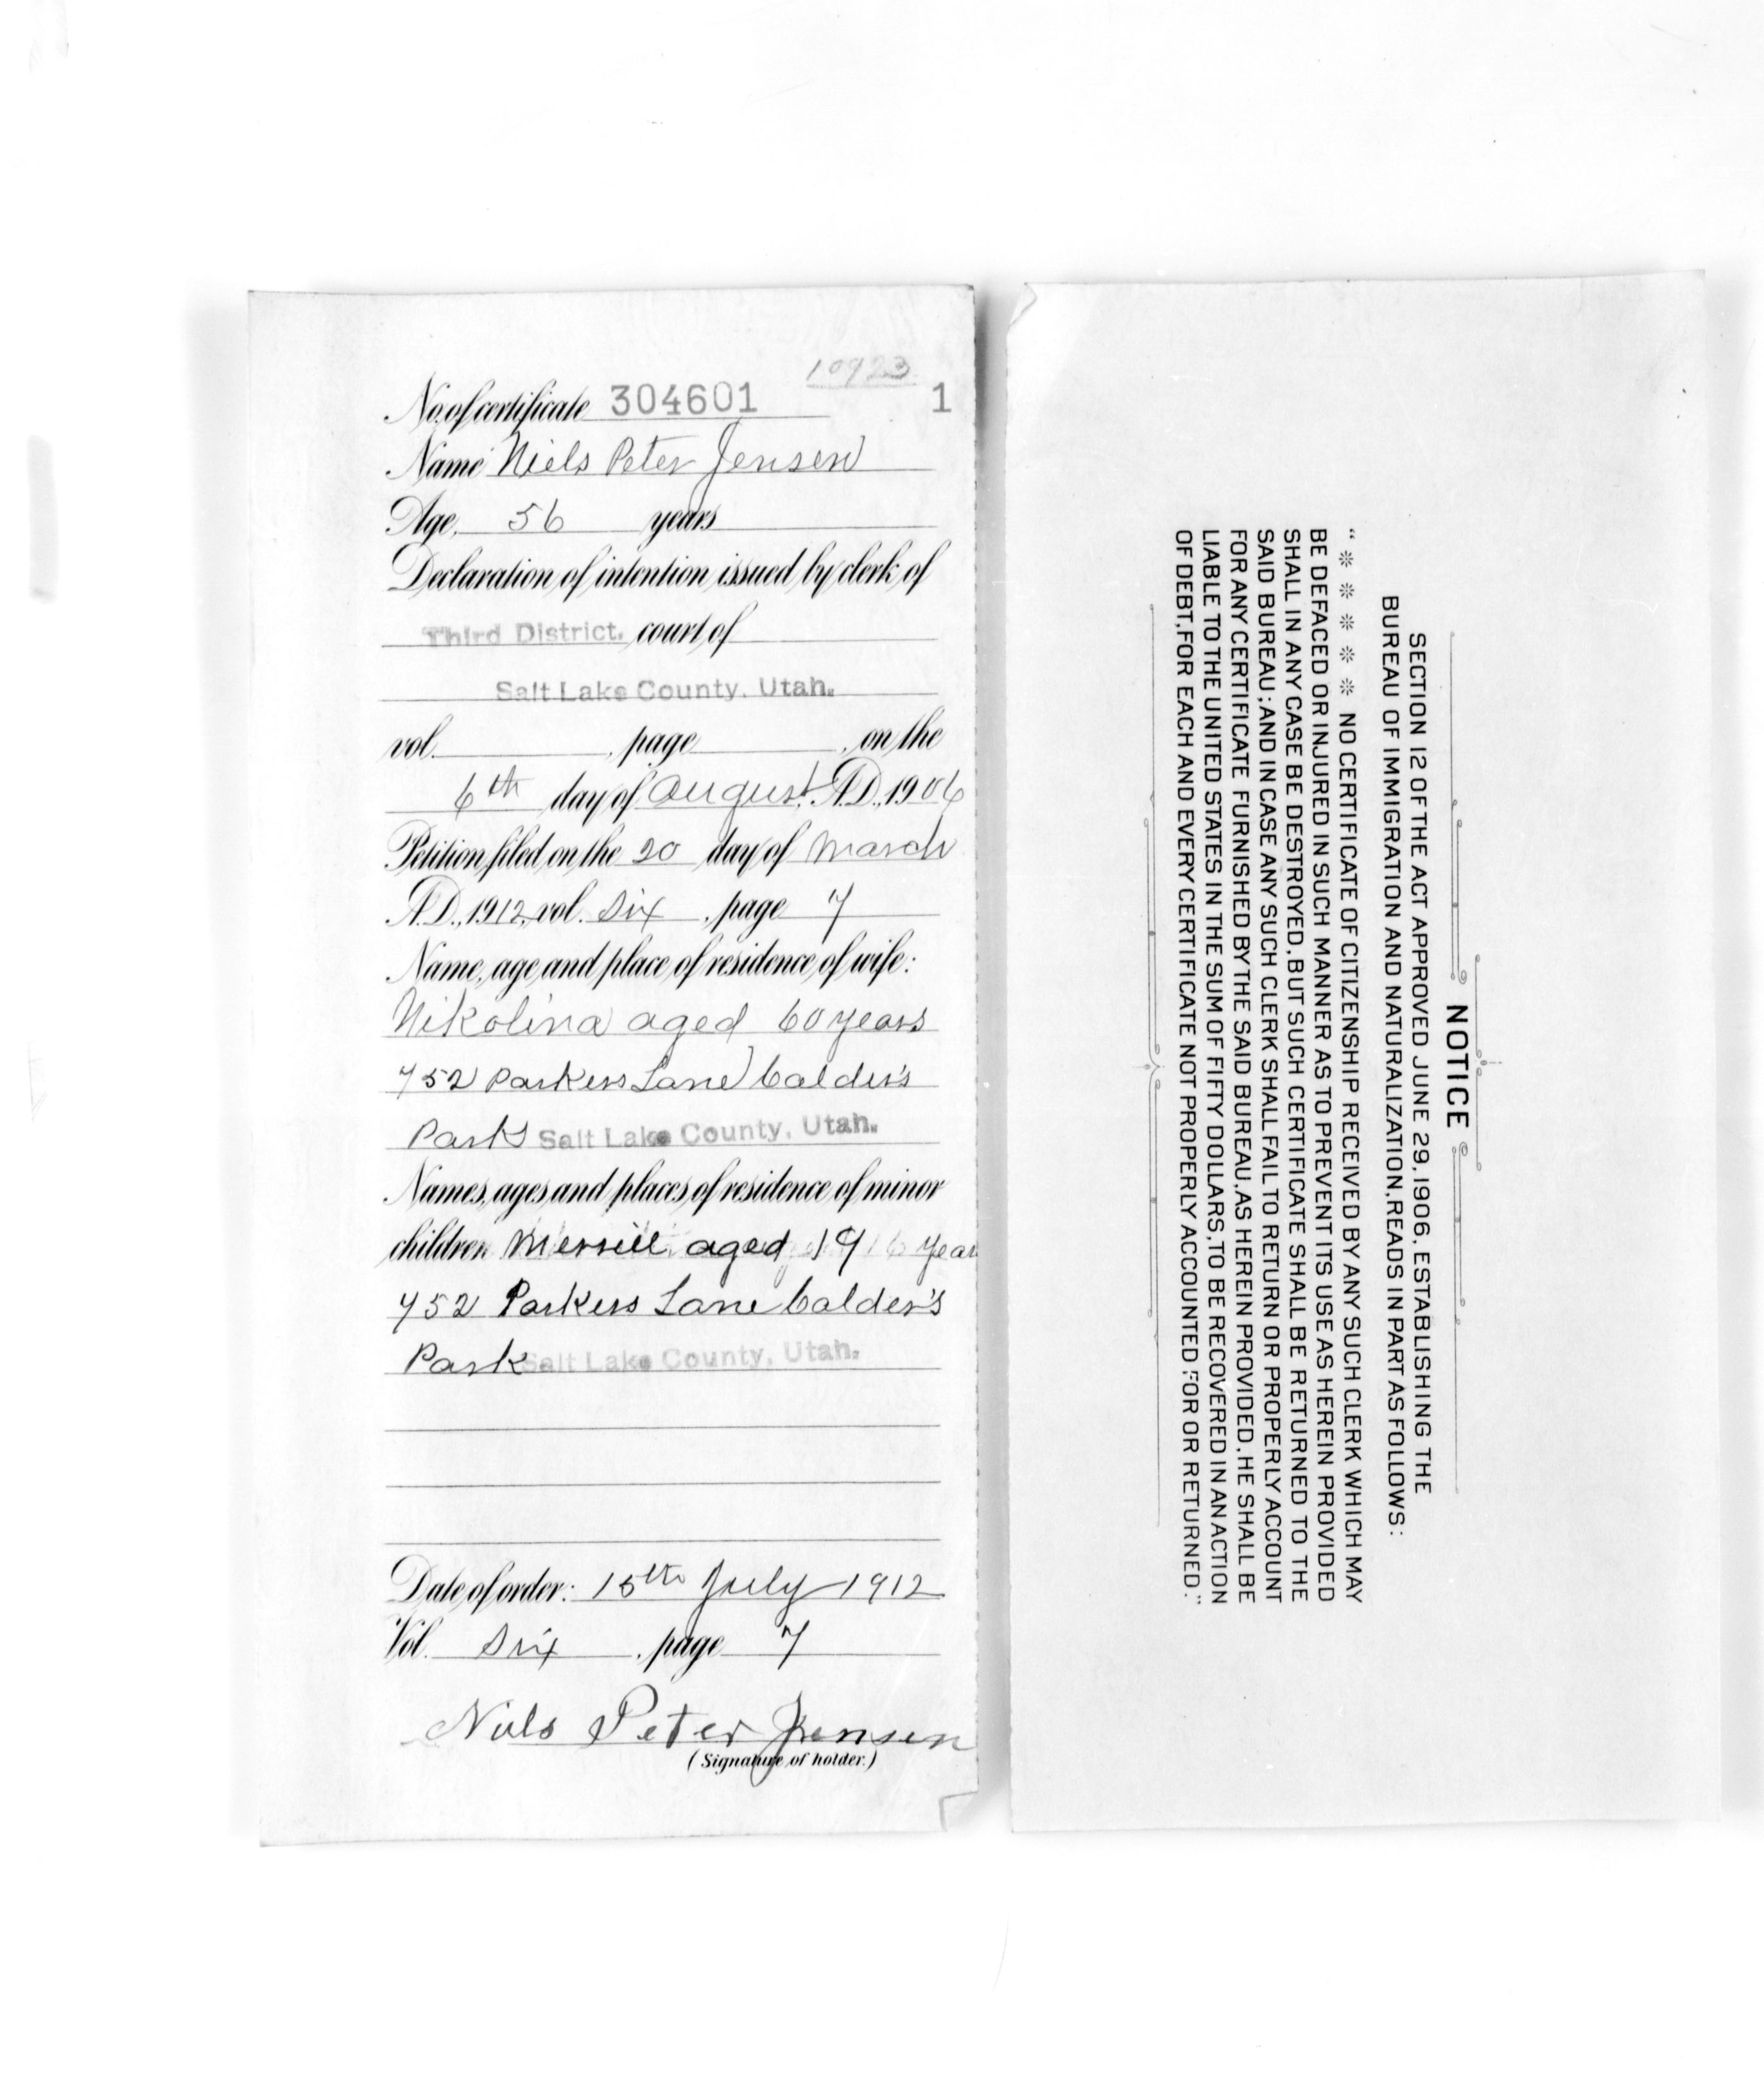 10923
No. of certificate 304601 1
Name Niels Peter Jensen
Age, 56 years
Declaration of intention issued by clerk of
Third District. court of
Salt Lake County, Utah.
vol. , page , on the
6th day of August, A.D., 1906
Petition filed on the 20 day of March
A.D., 1912, vol. Six , page 7
Name, age and place of residence of wife:
Nikolina aged 60 years
752 Parkers Lane Calder's
Park Salt Lake County, Utah.
Names, ages and places of residence of minor
children Merrill aged 19 year
752 Parkers Lane Calder's
Park Salt Lake County, Utah.
Date of order: 15th July 1912
Vol. Six , page 7
Niels Peter Jensen
(Signature of holder.)
NOTICE
SECTION 12 OF THE ACT APPROVED JUNE 29, 1906, ESTABLISHING THE
BUREAU OF IMMIGRATION AND NATURALIZATION, READS IN PART AS FOLLOWS:
"※ ※ ※ ※ ※ NO CERTIFICATE OF CITIZENSHIP RECEIVED BY ANY SUCH CLERK WHICH MAY
BE DEFACED OR INJURED IN SUCH MANNER AS TO PREVENT ITS USE AS HEREIN PROVIDED
SHALL IN ANY CASE BE DESTROYED, BUT SUCH CERTIFICATE SHALL BE RETURNED TO THE
SAID BUREAU; AND IN CASE ANY SUCH CLERK SHALL FAIL TO RETURN OR PROPERLY ACCOUNT
FOR ANY CERTIFICATE FURNISHED BY THE SAID BUREAU, AS HEREIN PROVIDED, HE SHALL BE
LIABLE TO THE UNITED STATES IN THE SUM OF FIFTY DOLLARS, TO BE RECOVERED IN AN ACTION
OF DEBT, FOR EACH AND EVERY CERTIFICATE NOT PROPERLY ACCOUNTED FOR OR RETURNED."